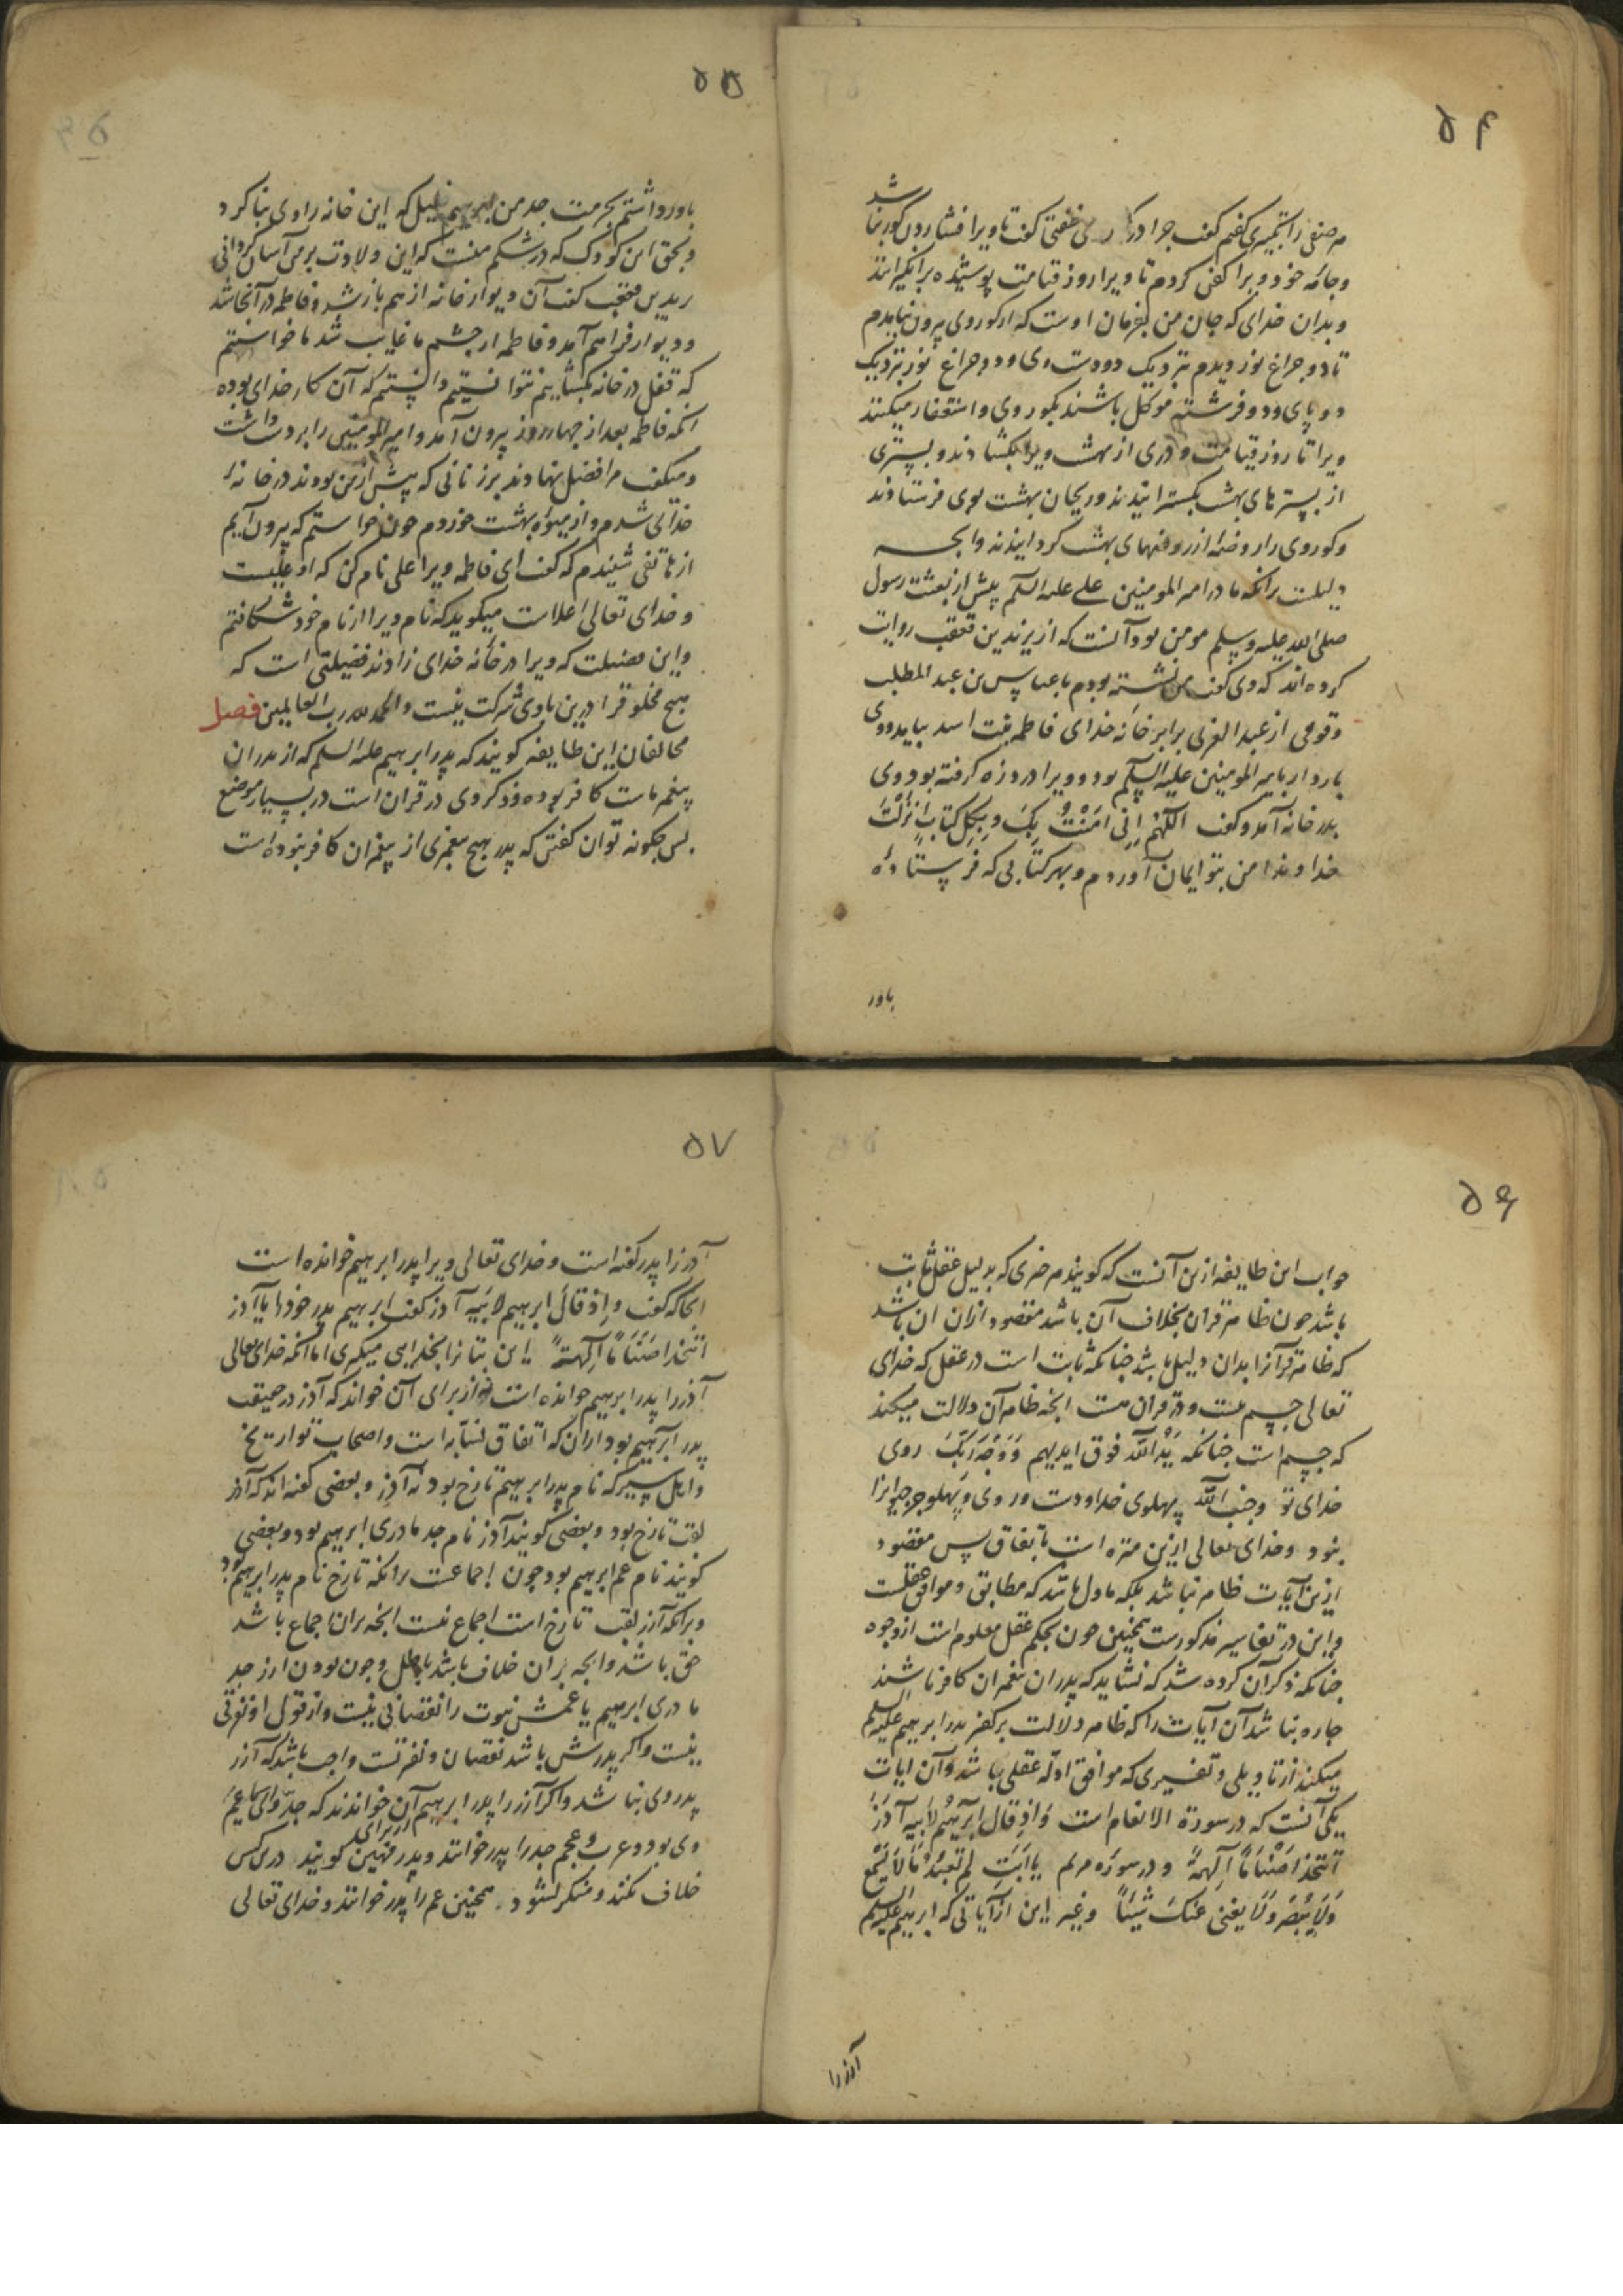 ۵۴
شد
هر صفی را تکبیری گفتم گفت چرا در گور می خفتی گفت تا ویرا فشاردن گور نبا
وجامه خود ویرا کفن کردم تا ویرا روز قیامت پوشیده برانگیزانند
و بدان خدای که جان من بفرمان اوست که از گور وی بیرون نیامدم
تا دو چراغ نور دیدم نزدیک دو دست وی و دو چراغ نور نزدیک
دو پای و دو فرشته موکل باشند بگور وی و استغفار میکنند
ویرا تا روز قیامت و دری از بهشت ویرا بگشادند و بستری
از بسترهای بهشت بگسترانیدند و ریحان بهشت بوی فرستادند
و گور وی را روضه از روضهای بهشت گردانیدند و انچه
دلیلست برانکه مادر امیر المومنین علی علیه السلم پیش از بعثت رسول
صلی الله علیه وسلم مومن بود آنست که از یزید بن قعنب روایت
کرده‌اند که وی گفت من نشسته بودم با عباس بن عبد المطلب
و قومی از عبد العزی برابر خانه خدای فاطمه بنت اسد بیامد و وی
باردار بامیر المومنین علیه السلم بود و ویرا درد زه گرفته بود وی
بدر خانه آمد و گفت اَللّهُمَّ اِنّی امَنْتُ بِکَ وَ بِکُلِ کِتابٍ اَنْزَلْتَ
خداوندا من بتو ایمان آوردم و بهر کتابی که فرستاده
باور
۵۵
باور داشتم بحرمت جد من ابرهیم خلیل که این خانه را وی بنا کرد
و بحق این کودک که در شکم منست که این ولادت بر من آسان گردانی
یزید بن قعنب گفت آن دیوار خانه از هم باز شد و فاطمه در آنجا شد
و دیوار فراهم آمد و فاطمه از چشم ما غایب شد ما خواستیم
که قفل در خانه بگشاییم نتوانستیم دانستیم که آن کار خدای بوده
انگه فاطمه بعد از چهار روز بیرون آمد و امیر المومنین را بر دست داشت
و میگفت مرا فضل نهادند بر زنانی که پیش از من بودند در خانه
خدای شدم و از میوه بهشت خوردم چون خواستم که بیرون آیم
از هاتفی شنیدم که گفت ای فاطمه ویرا علی نام کن که او علیست
و خدای تعالی اعلاست میگوید که نام ویرا از نام خود شکافتم
و این فضیلت که ویرا در خانه خدای زادند فضیلتی است که
هیچ مخلوق را درین با وی شرکت نیست و الحمد لله رب العالمین فصل
مخالفان این طایفه گویند که پدر ابرهیم علیه السلم که از پدران
پیغمبر ماست کافر بوده و ذکر وی در قران است در بسیار موضع
پس چگونه توان گفتن که پدر هیچ پیغمبری از پیغمبران کافر نبوده است
۵۶
جواب این طایفه ازین آنست که گویند هر چیزی که بدلیل عقل ثابت
باشد چون ظاهر قران بخلاف آن باشد مقصود ازان ان باشد
که ظاهر قرآنرا بدان دلیل باشد چنانکه ثابت است در عقل که خدای
تعالی جسم نیست و در قران هست انچه ظاهر آن دلالت میکند
که جسم است چنانکه یَدُ اللَّه فوق ایدیهم وَ وَجْهَ رَبِّکَ روی
خدای تو و جنب اللَّه پهلوی خدا و دست و روی و پهلو جز جسم را
نبود و خدای تعالی ازین منزه است باتفاق پس مقصود
ازین آیات ظاهر نباشد بلکه ماول باشد که مطابق و موافق عقلست
و این در تفاسیر مذکورست همچنین چون بحکم عقل معلوم است از وجوه
چنانکه ذکر آن کرده شد که نشاید که پدران پیغمبران کافر باشند
چاره نباشد آن آیات را که ظاهر دلالت بر کفر پدر ابرهیم علیه السلم
میکند از تاویلی و تفسیری که موافق ادله عقلی باشد و آن ایات
یکی آنست که در سورة الانعام است وَ اذِ قال ابرَهِیُم لاَبیهِ آدزَرَ
اَتَتَّخذُ اَصْنَامًا آلِهةً و در سوره مریم یا اَبَتِ لِم تَعْبُدُ مَا لاَیَسْمَعُ
وَلاَ یُبْصِرُ وَلاَ یغنی عَنکَ شَیْئاً و غیر این از آیاتی که ابرهیم علیه السلم
آزر را
۵۷
آذر را پدر گفته است و خدای تعالی ویرا پدر ابرهیم خوانده است
انجا که گفت وَاِذ قالَ ابرهیم لاَبَیهِ آدز گفت ابرهیم پدر خود را یا آدز
اتتخذ اَصْنَامًا آلِهةً این بتانرا بخدایی میگیری اما انکه خدای تعالی
آذر را پدر ابرهیم خوانده است نه از برای آن خواند که آذر در حقیقت
پدر ابرهیم بود ازان که اتفاق نسابه است و اصحاب تواریخ
و اهل سیر که نام پدر ابرهیم تارخ بود نه آذر و بعضی گفته‌اند که آذر
لقب تارخ بود و بعضی گویند آذر نام جد مادری ابرهیم بود و بعضی
گویند نام عم ابرهیم بود چون اجماعست برانکه تارخ نام پدر ابرهیم بود
و برانکه آزر لقب تارخ است اجماع نیست انچه بران اجماع باشد
حق باشد و انچه بران خلاف باشد باطل و چون بودن ازر جد
مادری ابرهیم یا عمش نبوت را نقصانی نیست و از قول او نفرتی
نیست و اگر پدرش باشد نقصان و نفرتست واجب باشد که آزر
پدر وی نباشد و اگر آزر را پدر ابرهیم از برای آن خواندند که جد وی یا عم
وی بود و عرب و عجم جد را پدر خوانند و پدر مهین گویند درین کس
خلاف نکند و منکر نشود . همچنین عم را پدر خوانند و خدای تعالی